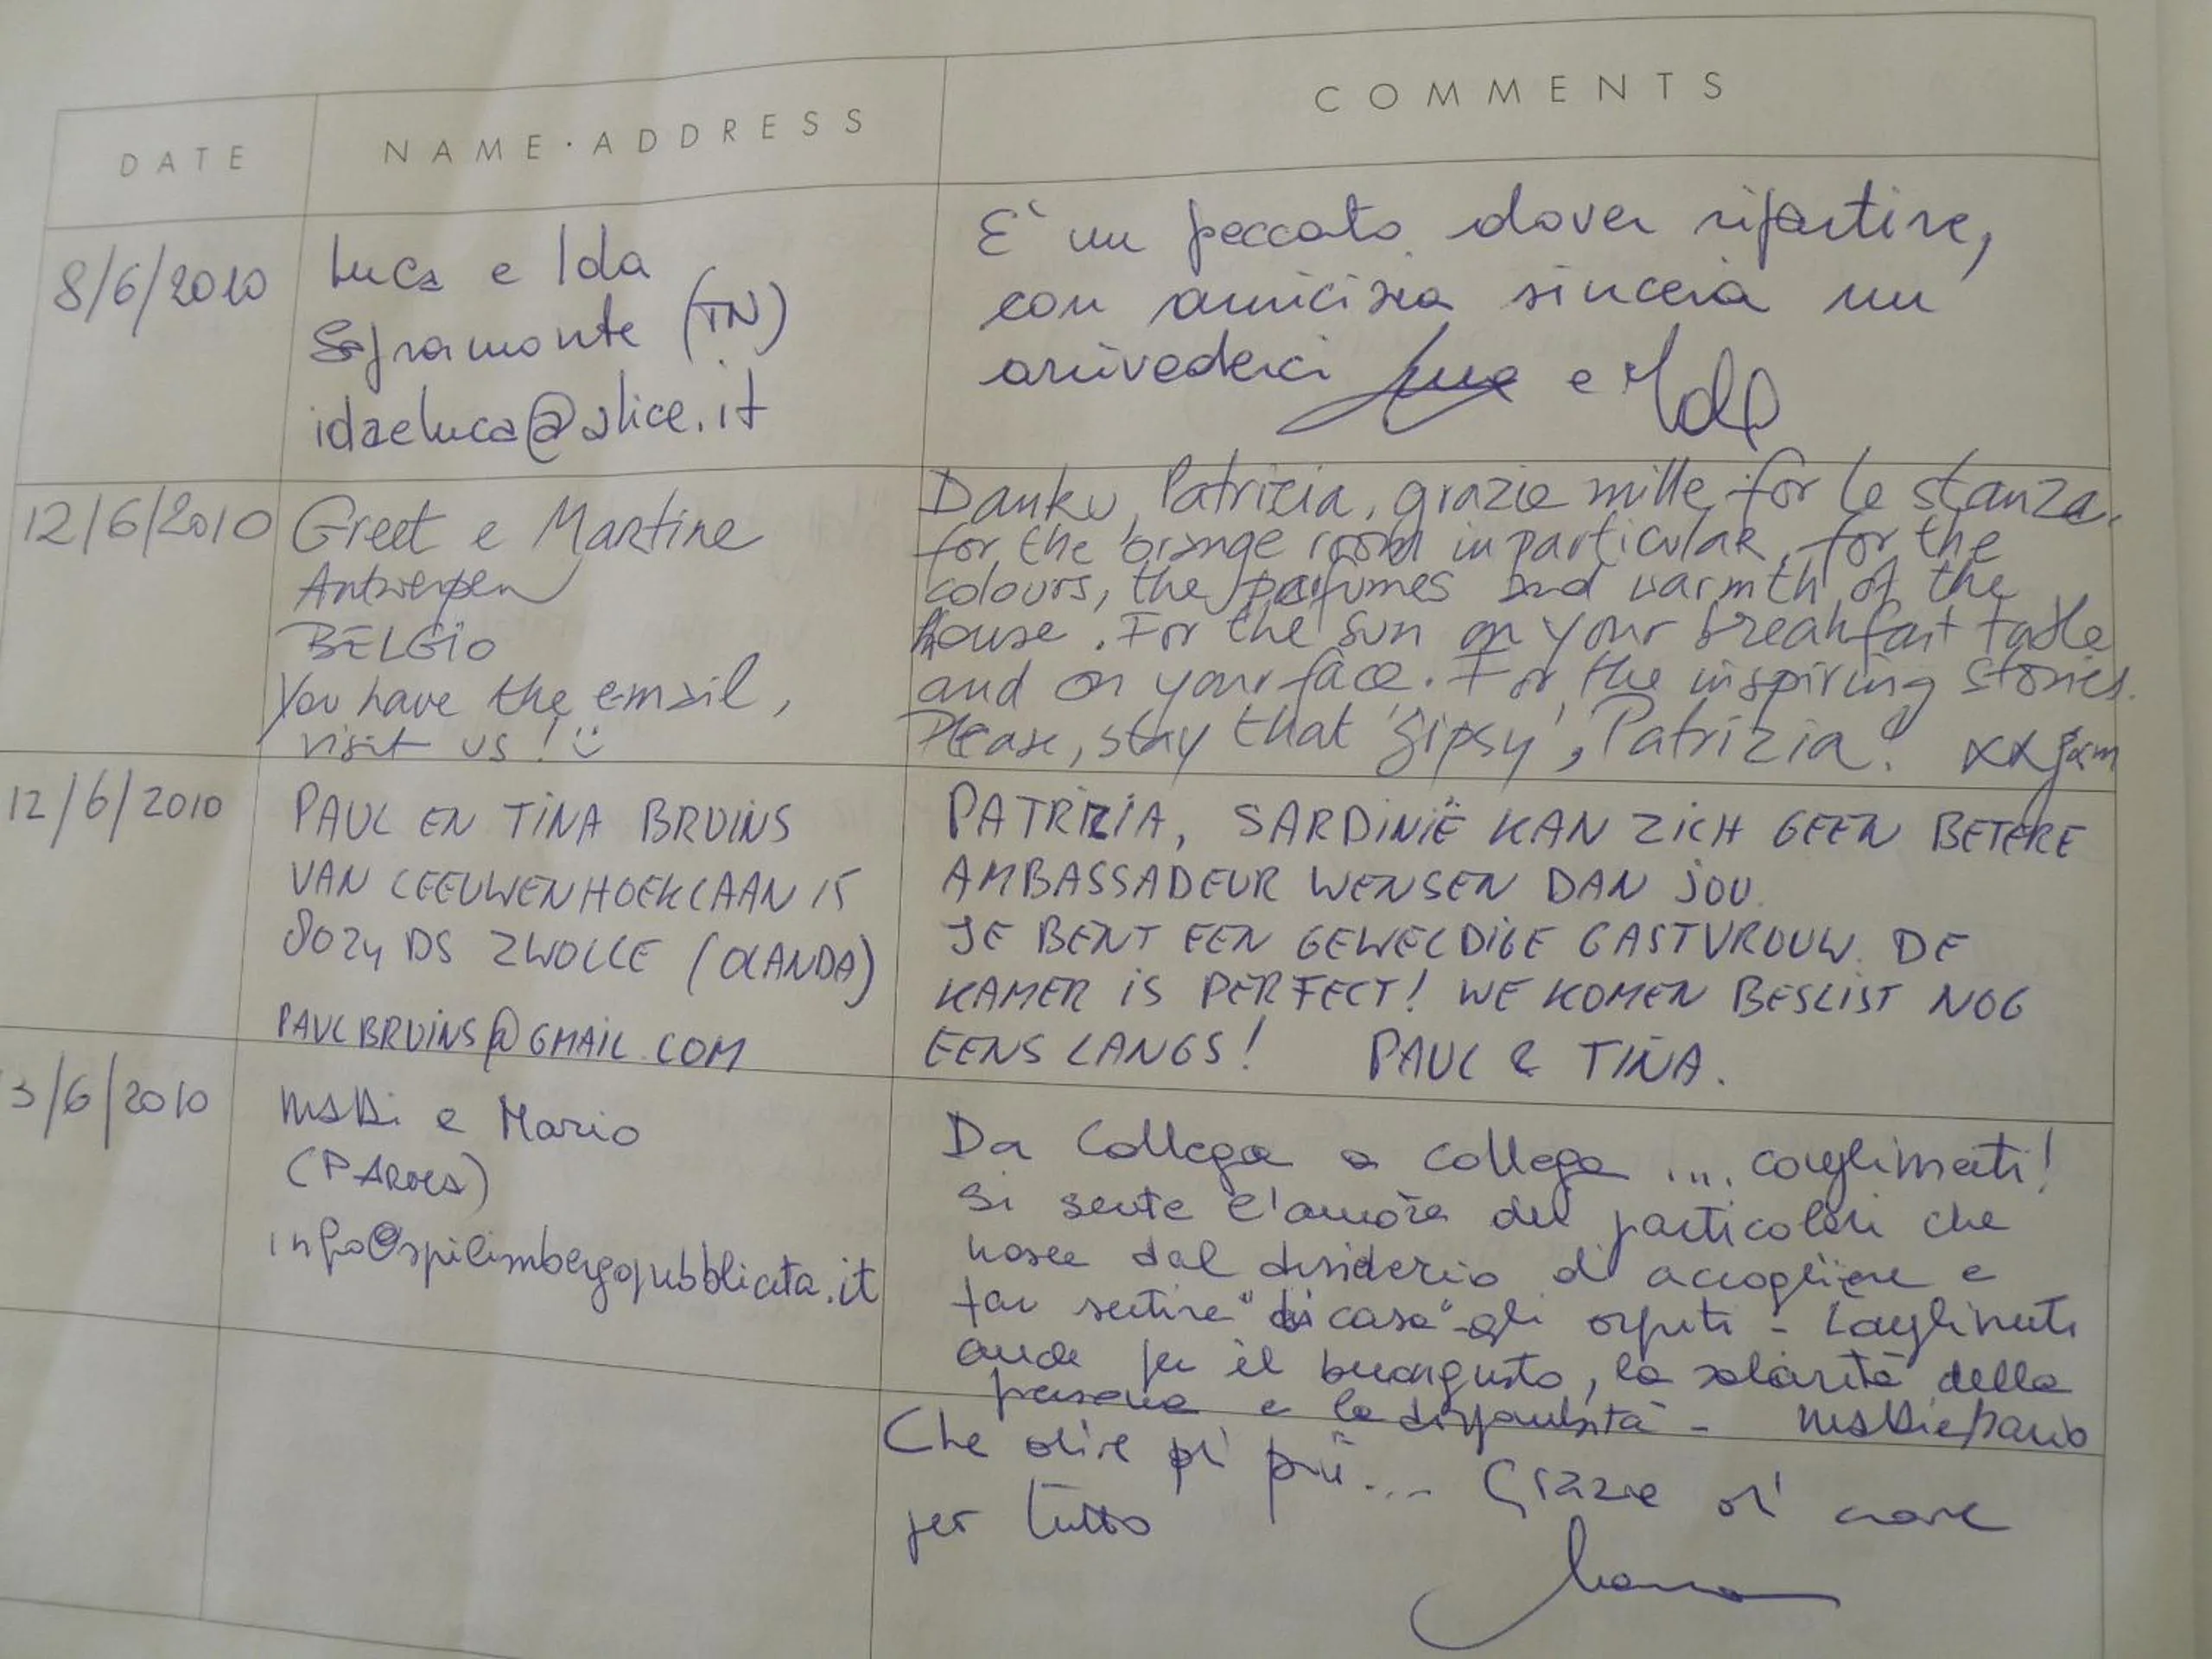 DATE NAME·ADDRESS COMMENTS
8/6/2010
Luca e Ida
Sopramonte (TN)
idaeluca@alice.it
E' un peccato dover ripartire,
con amicizia sincera un
arrivederci Luca e Ida
12/6/2010
Greet e Martine
Antwerpen
BELGIO
You have the email,
visit us! :)
Danku Patrizia, grazie mille for le stanza.
for the orange room in particular, for the
colours, the parfumes and warmth of the
house. For the sun on your breakfast table
and on your face. For the inspiring stories.
Please, stay that 'gipsy', Patrizia! xx g&m
12/6/2010
PAUL EN TINA BRUINS
VAN LEEUWENHOEKLAAN 15
8024 DS ZWOLLE (OLANDA)
PAULBRUINS@GMAIL.COM
PATRIZIA, SARDINIË KAN ZICH GEEN BETERE
AMBASSADEUR WENSEN DAN JOU.
JE BENT EEN GEWELDIGE GASTVROUW. DE
KAMER IS PERFECT! WE KOMEN BESLIST NOG
EENS LANGS! PAUL & TINA.
3/6/2010
e Mario
info@spilimbergopubblicita.it
Da Collega a collega .... complimenti!
Si sente l'amore dei particolari che
nasce dal desiderio d'accogliere e
far sentire "di casa" gli ospiti - Complimenti
anche per il buongusto, la solarità della
persona e la disponibilità - e Mario
Che dire di più.... Grazie di cuore
per tutto